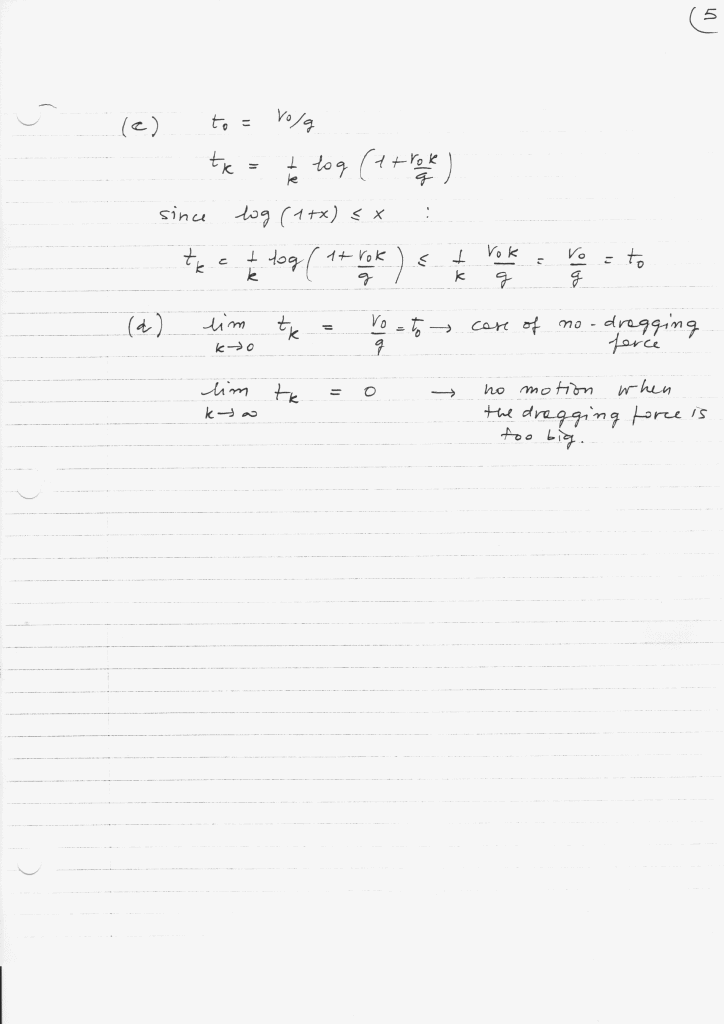 (5
(c) t₀ = v₀/g
tₖ = 1/k log (1+ v₀k/g)
since log (1+x) ≤ x :
tₖ = 1/k log (1+ v₀k/g) ≤ 1/k v₀k/g = v₀/g = t₀
(d) lim k→0 tₖ = v₀/g = t₀ → case of no-dragging
force
lim k→∞ tₖ = 0 → no motion when
the dragging force is
too big.